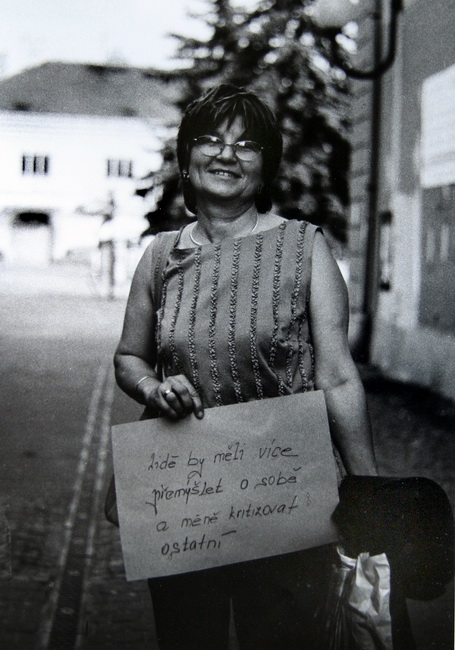 lidé by měli více
přemýšlet o sobě
a méně kritizovat
ostatní